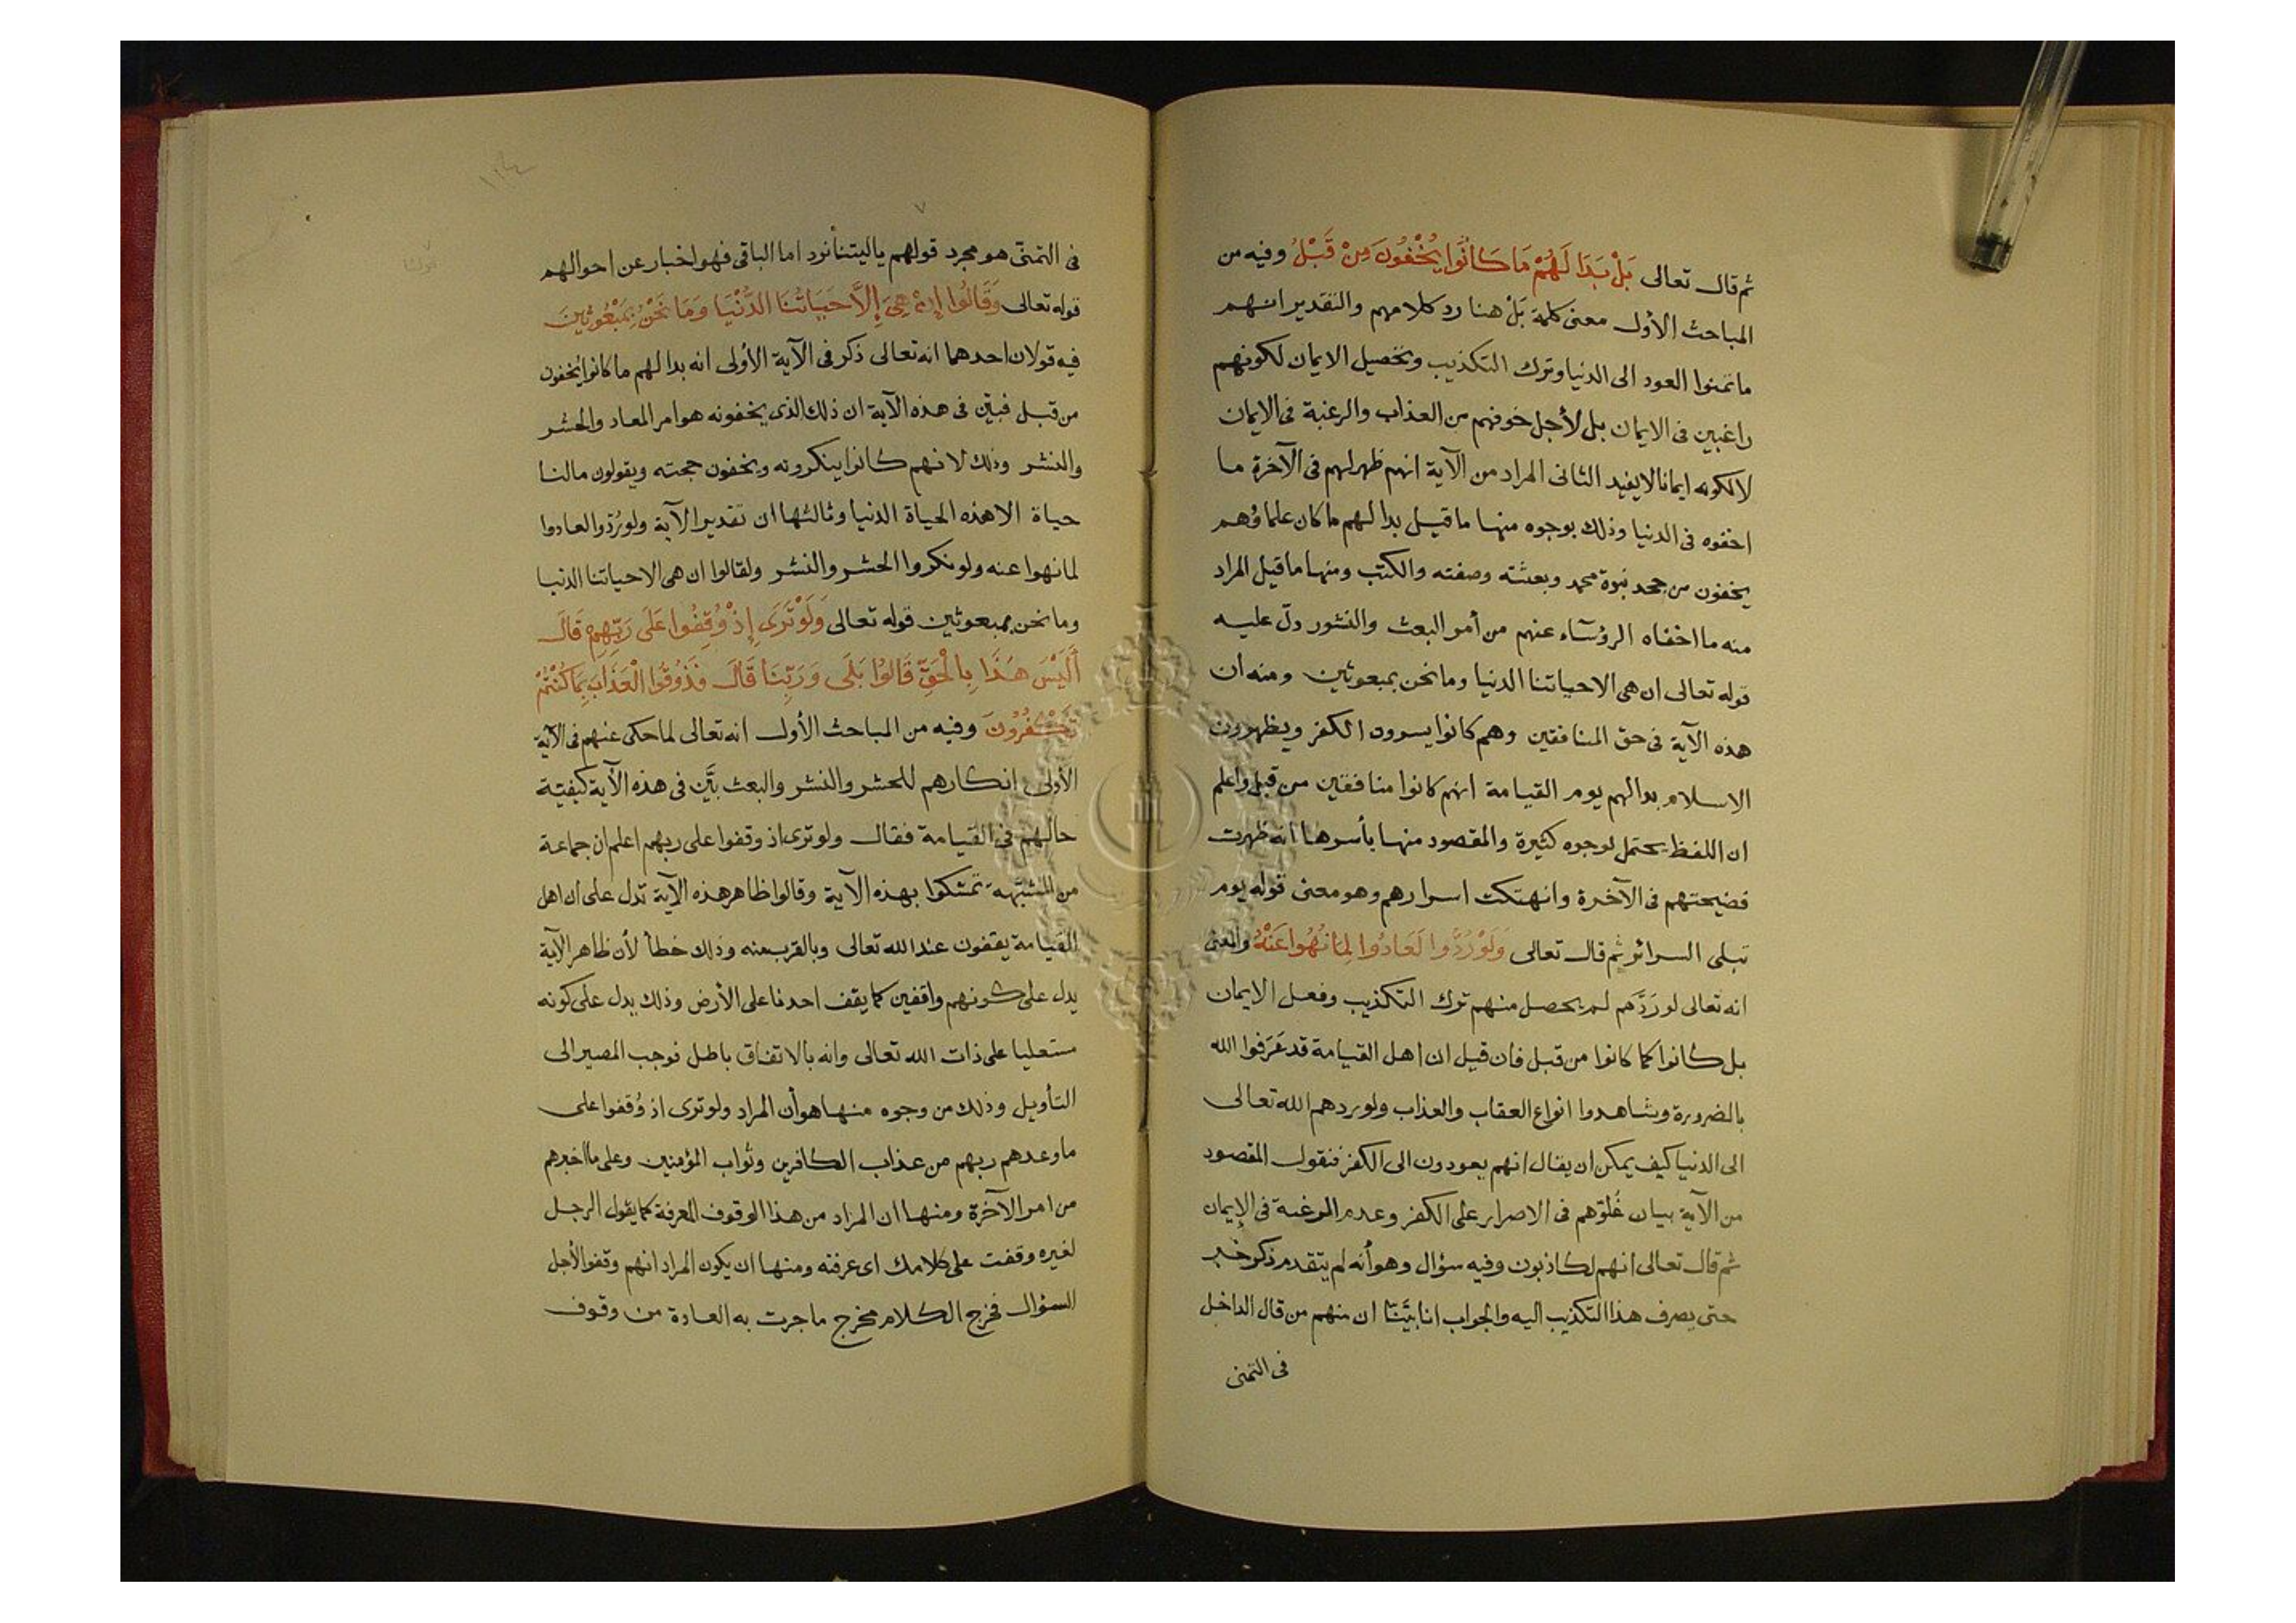 ثم قال تعالى بَلْ بَدَا لَهُمْ مَا كَانُوا يُخْفُونَ مِنْ قَبْلُ وفيه من
المباحث الأول معنى كلمة بَلْ هنا رد كلامهم والتقدير انهم
ما تمنوا العود الى الدنيا وترك التكذيب وتحصيل الايمان لكونهم
راغبين فى الايمان بل لأجل خوفهم من العذاب والرغبة فى الايمان
لا لكونه ايمانا لا يفيد الثانى المراد من الآية انهم ظهر لهم فى الآخرة ما
اخفوه فى الدنيا وذلك بوجوه منها ما قيل بدا لهم ما كان علماؤهم
يخفون من جحد نبوة محمد وبعثته وصفته والكتب ومنها ما قيل المراد
منه ما اخفاه الرؤسآء عنهم من أمر البعث والنشور دلّ عليه
قوله تعالى ان هى الا حياتنا الدنيا وما نحن بمبعوثين ومنه ان
هذه الآية فى حق المنافقين وهم كانوا يسرون الكفر ويظهرون
الاسلام بدا لهم يوم القيامة انهم كانوا منافقين من قبل واعلم
ان اللفظ يحتمل لوجوه كثيرة والمقصود منها بأسرها انه ظهرت
فضيحتهم فى الآخرة وانهتكت اسرارهم وهو معنى قوله يوم
تبلى السرائر ثم قال تعالى وَلَوْ رُدُّوا لَعَادُوا لِمَا نُهُوا عَنْهُ والمعنى
انه تعالى لو رَدَّهم لم يحصل منهم ترك التكذيب وفعل الايمان
بل كانوا كما كانوا من قبل فان قيل ان اهل القيامة قد عَرَفوا الله
بالضرورة وشاهدوا انواع العقاب والعذاب ولو ردهم الله تعالى
الى الدنيا كيف يمكن ان يقال انهم يعودون الى الكفر فنقول المقصود
من الآية بيان غُلوّهم فى الاصرار على الكفر وعدم الرغبة فى الإيمان
ثم قال تعالى انهم لكاذبون وفيه سؤال وهو أنه لم يتقدم ذكر خبر
حتى يصرف هذا التكذيب اليه والجواب انا بيَّنّا ان منهم من قال الداخل
فى التمنى
فى التمنّى هو مجرد قولهم ياليتنا نرد اما الباقى فهو اخبار عن احوالهم
قوله تعالى وَقَالُوا إِنْ هِىَ إِلَّا حَيَاتُنَا الدُّنْيَا وَمَا نَحْنُ بِمَبْعُوثِينَ
فيه قولان احدهما انه تعالى ذكر فى الآية الأولى انه بدا لهم ما كانوا يخفون
من قبل فبيّن فى هذه الآية ان ذلك الذى يخفونه هو امر المعاد والحشر
والنشر وذلك لانهم كانوا ينكرونه ويخفون حجته ويقولون مالنا
حياة الا هذه الحياة الدنيا وثالثها ان تقدير الآية ولو رُدّوا لعادوا
لما نهوا عنه ولونكروا الحشر والنشر ولقالوا ان هى الا حياتنا الدنيا
وما نحن بمبعوثين قوله تعالى وَلَوْ تَرَى إِذْ وُقِفُوا عَلَى رَبِّهِمْ قَالَ
أَلَيْسَ هَذَا بِالْحَقِّ قَالُوا بَلَى وَرَبِّنَا قَالَ فَذُوقُوا الْعَذَابَ بِمَا كُنْتُمْ
تَكْفُرُونَ وفيه من المباحث الأول انه تعالى لما حكى عنهم فى الآية
الأولى انكارهم للحشر والنشر والبعث بيَّن فى هذه الآية كيفيّة
حالهم فى القيامة فقال ولو ترى اذ وقفوا على ربهم اعلم ان جماعة
من المشبّهة تمسّكوا بهذه الآية وقالوا ظاهر هذه الآية تدل على ان اهل
القيامة يقفون عند الله تعالى وبالقرب منه وذلك خطأ لأن ظاهر الآية
يدل على كونهم واقفين كما يقف احدنا على الأرض وذلك يدل على كونه
مستعليا على ذات الله تعالى وانه بالاتفاق باطل فوجب المصير الى
التأويل وذلك من وجوه منها هو أن المراد ولو ترى اذ وُقفوا على
ما وعدهم ربهم من عذاب الكافرين وثواب المؤمنين وعلى ما اخبرهم
من امر الآخرة ومنها ان المراد من هذا الوقوف المعرفة كما يقول الرجل
لغيره وقفت على كلامك اى عرفته ومنها ان يكون المراد انهم وقفوا لأجل
السؤال فخرج الكلام مخرج ما جرت به العادة من وقوف